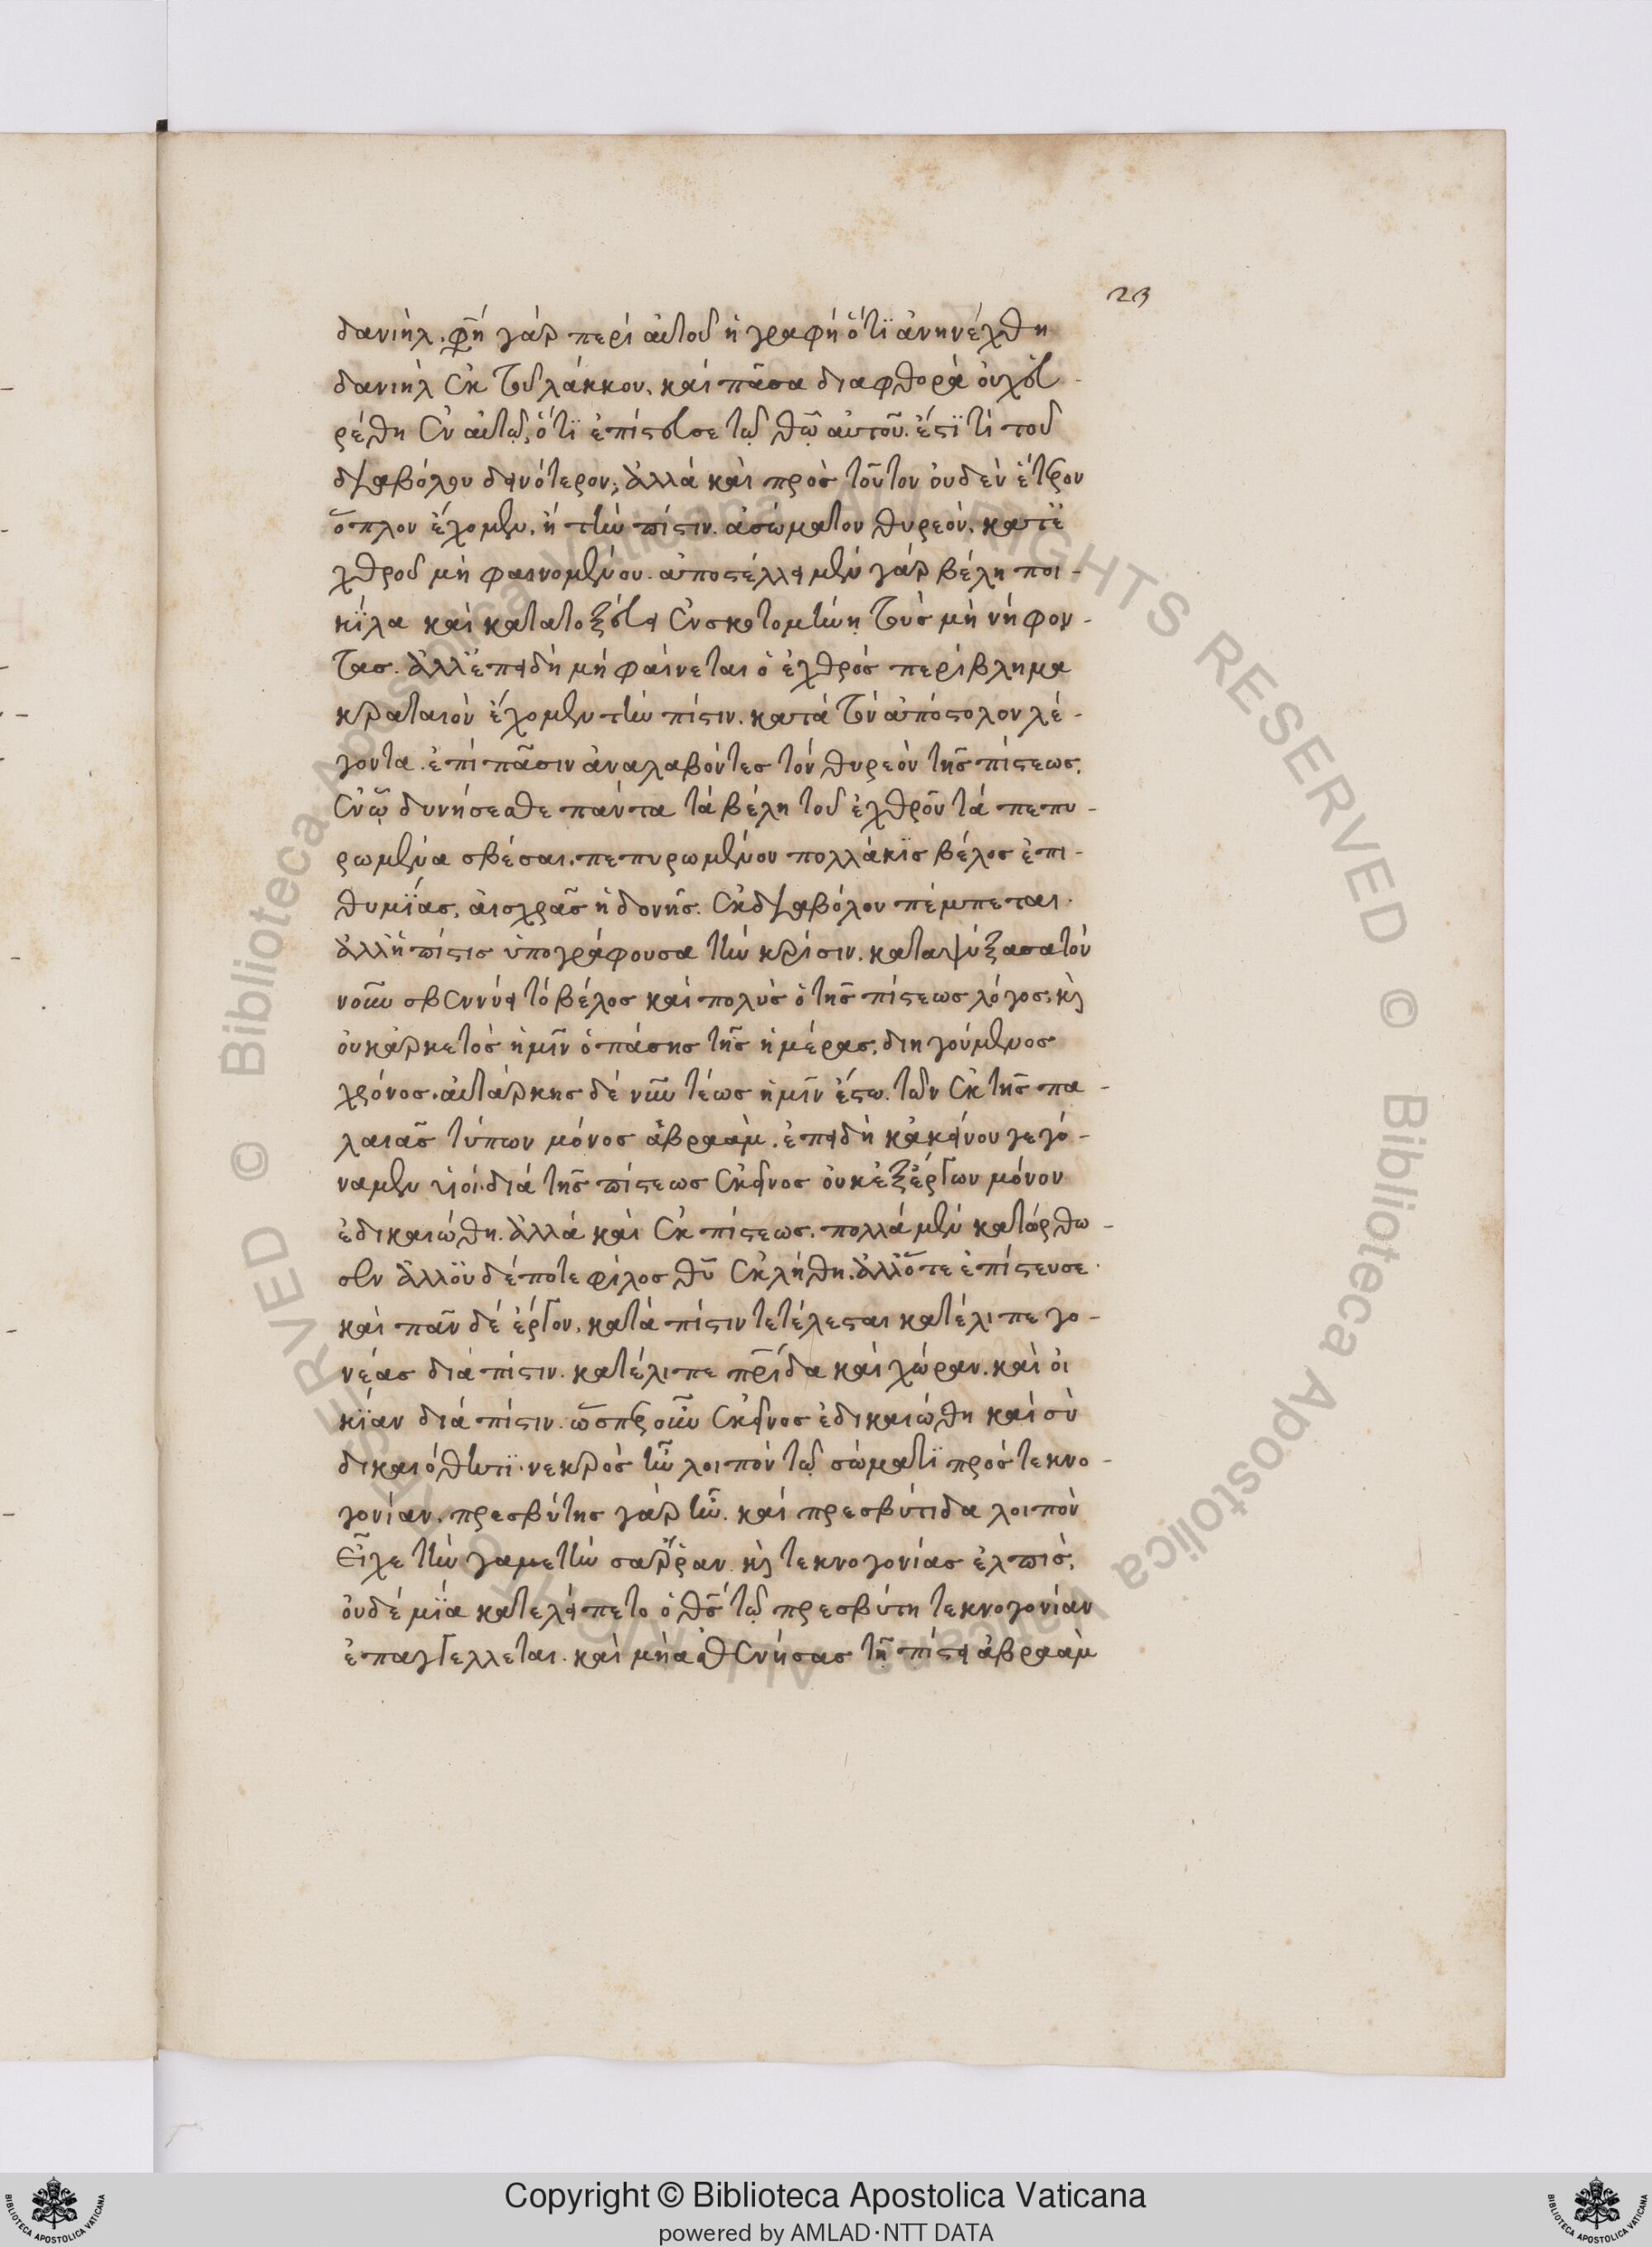 23
δανιήλ. φησὶ γάρ περί αὐτοῦ ἡ γραφή ὅτϊ ἀνηνέχθη
δανιήλ ἐκ τοῦ λάκκου, καί πᾶσα διαφθορά οὐχ εὑ-
ρέθη ἐν αὐτῷ, ὅτϊ ἐπίστευσε τῷ θῶ αὐτοῦ. ἔστϊ τὶ τοῦ
διαβόλου δεινότερον; ἀλλά καὶ πρὸς τοῦτον οὐδὲν ἕτερον
ὅπλον ἔχομεν, ἤ τὴν πίστιν. ἀσώματον θυρεόν, κατ' ἐ
χθροῦ μὴ φαινομένου. ἀποστέλλει μὲν γάρ βέλη ποι-
κϊλα καί κατατοξεύει ἐν σκοτομήνῃ τοὺς μὴ νήφον-
τας. ἀλλ' ἐπειδὴ μή φαίνεται ὁ ἐχθρός περίβλημα
κραταιόν ἔχομεν τὴν πίστιν. κατά τόν ἀπόστολον λέ-
γοντα. ἐπί πᾶσιν ἀναλαβόντες τόν θυρεόν τῆς πίστεως.
ἐν ᾧ δυνήσεσθε πάντα τά βέλη τοῦ ἐχθροῦ τά πεπυ-
ρωμένα σβέσαι. πεπυρωμένον πολλάκϊς βέλος ἐπι-
θυμΐας, αἰσχρᾶς ἡδονῆς. ἐκ διαβόλου πέμπεται.
ἀλλ' ἡ πίστις ὑπογράφουσα τήν κρίσιν. καταψύξασα τόν
νοῦν σβεννύει τό βέλος καί πολύς ὁ τῆς πίστεως λόγος. κὶ
οὐκ ἀρκετός ἡμῖν ὁ πάσης τῆς ἡμέρας, διηγούμενος
χρόνος. αὐτάρκης δέ νῦν τέως ἡμῖν ἔστω. τῶν ἐκ τῆς πα-
λαιᾶς τύπων μόνος ἀβραάμ. ἐπειδὴ κἀκείνου γεγό-
ναμεν υἱοί. διά τῆς πίστεως ἐκεῖνος οὐκ ἐξ ἔργων μόνον
ἐδικαιώθη. ἀλλά καὶ ἐκ πίστεως. πολλά μέν κατώρθω-
σεν ἀλλ' οὐδέποτε φίλος θῦ ἐκλήθη. ἀλλ' ὅτε ἐπίστευσε.
καί πᾶν δέ ἔργον, κατά πίστιν τετέλεσται κατέλιπε γο-
νέας διά πίστιν. κατέλιπε πρίδα καί χώραν. καί οἰ
κΐαν διά πίστιν. ὥσπερ οὖν ἐκεῖνος ἐδικαιώθη καί σὺ
δικαιόθητϊ. νεκρός ἦν λοιπόν τῷ σώματϊ πρός τεκνο-
γονίαν. πρεσβύτης γάρ ἦν. καί πρεσβύτιδα λοιπόν
εἶχε τήν γαμετήν σαρῥαν. κὶ τεκνογονίας ἐλπίς,
οὐδέ μΐα κατελείπετο ὁ θς τῷ πρεσβύτη τεκνογονίαν
ἐπαγγέλλεται. καὶ μὴ ἀσθενήσας τῇ πίστει ἀβραάμ
Copyright © Biblioteca Apostolica Vaticana
powered by AMLAD·NTT DATA